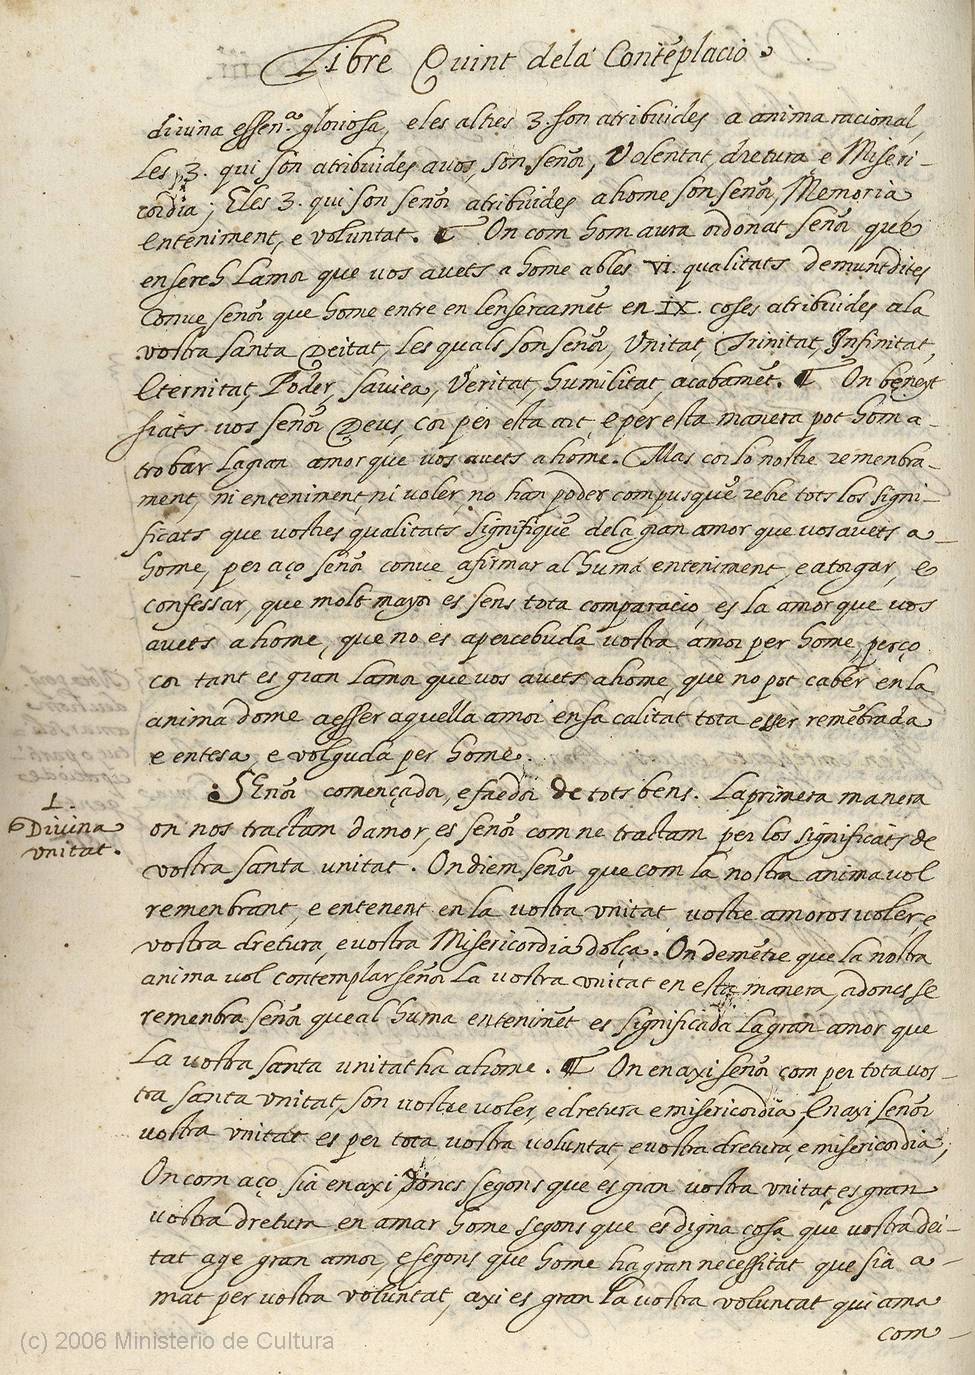 Libre Quint dela Contẽplacio
divina essen.ª gloriosa, e les altres 3. son atribuides a anima racional,
Les 3. qui son atribuides avos, son señor, Volentat, dretura e Miseri-
cordia; Eles 3. qui son señor atribuides ahome son señor, Memoria
Enteniment, e voluntat. ¶ On com hom aura ordonat señor que
enserch Lamor que vos avets a home ables VI. qualitats demunt dites
Conve señor que home entre en lensercamẽt en IX. coses atribuides ala
vostra santa Deitat, Les quals son señor, Unitat, Trinitat, Infinitat,
Eternitat, Poder, saviea, Veritat, humilitat, acabamẽt. ¶ On beneyt
siats vos señor Deus, cor per esta art, e per esta manera pot hom a-
trobar Lagran amor que vos avets ahome. Mas cor lo nostre remenbra-
ment, ni enteniment, ni voler, no han poder com pusquẽ rebre tots los signi-
ficats que vostres qualitats significẽ dela gran amor que vos avets a-
home, per aço señor conve afirmar al humá enteniment, e atorgar, e
confessar, que molt mayor es sens tota comparacio, es la amor que vos
avets ahome, que no es apercebuda vostra amor per home, perço
cor tant es gran Lamor que vos avets ahome, que no pot caber en la
anima dome aesser aquella amor ensa calitat tota esser remẽbrada
e entesa, e volguda per home.
SEnor començador, e faedor de tots bens. La primera manera
1.
Divina
vnitat.
on nos tractam damor, es señor com ne tractam per los significats de
vostra santa unitat. On diem señor que com la nostra anima vol
remenbrant, e entenent en la vostra vnitat vostre amoros voler, e
vostra dretura, e vostra Misericordia dolça. On demẽtre que la nostra
anima vol contemplar señor La vostra vnitat en esta manera, adoncs se
remenbra señor que al huma entenimẽt es significada La gran amor que
La vostra santa unitat ha ahome. ¶ On en axi señor com per tota vos-
tra santa vnitat, son vostre voler, e dretura e misericordia, En axi señor
vostra vnitat es per tota vostra voluntat, e vostra dretura, e misericordia,
On com aço sia en axi doncs segons que es gran vostra vnitat, es gran
vostra dretura en amar home segons que es digna cosa que vostra dei-
tat age gran amor, e segons que home ha gran necessitat que sia a-
mat per vostra voluntat, axi es gran La vostra voluntat qui ama
com
(c) 2006 Ministerio de Cultura